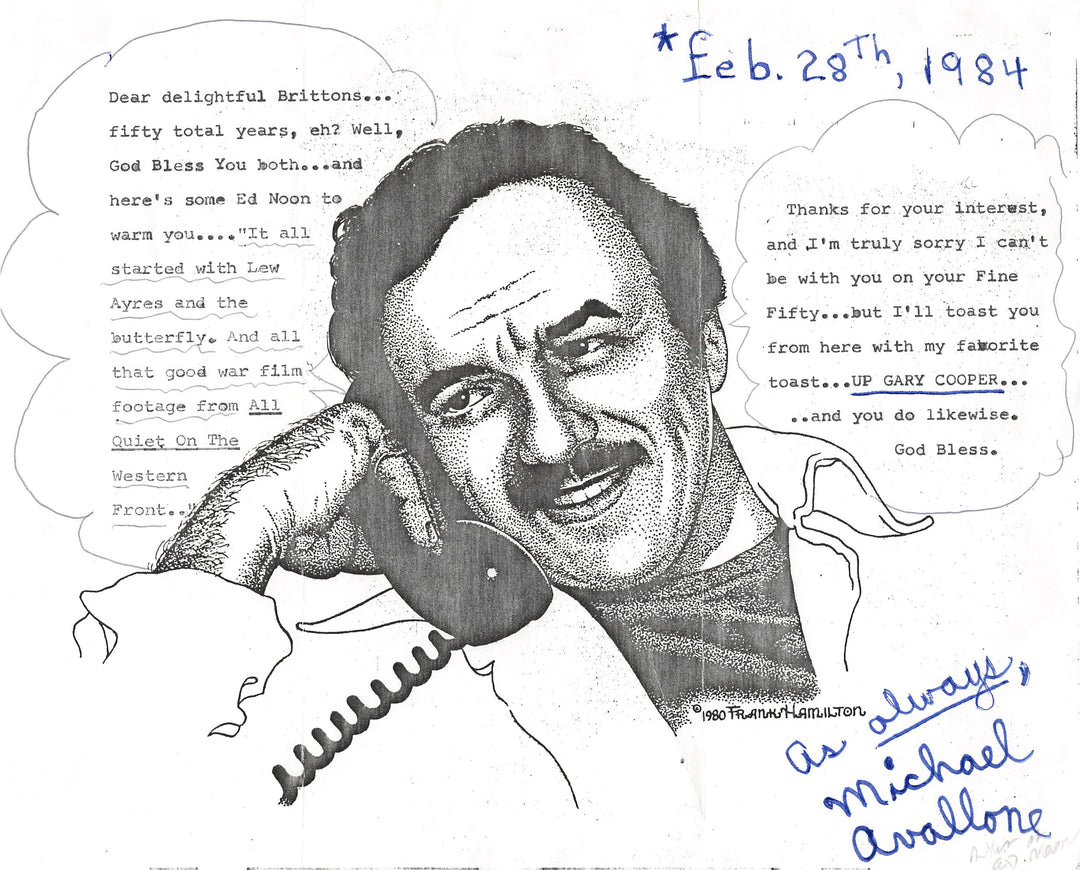 *Feb. 28Th, 1984
Dear delightful Brittons...
fifty total years, eh? Well,
God Bless You both...and
here's some Ed Noon to
warm you...."It all
started with Lew
Ayres and the
butterfly. And all
that good war film
footage from All
Quiet On The
Western
Front.."
Thanks for your interest,
and I'm truly sorry I can't
be with you on your Fine
Fifty...but I'll toast you
from here with my favorite
toast...UP GARY COOPER...
..and you do likewise.
God Bless.
©1980 FRANK HAMILTON
as always,
Michael
Avallone